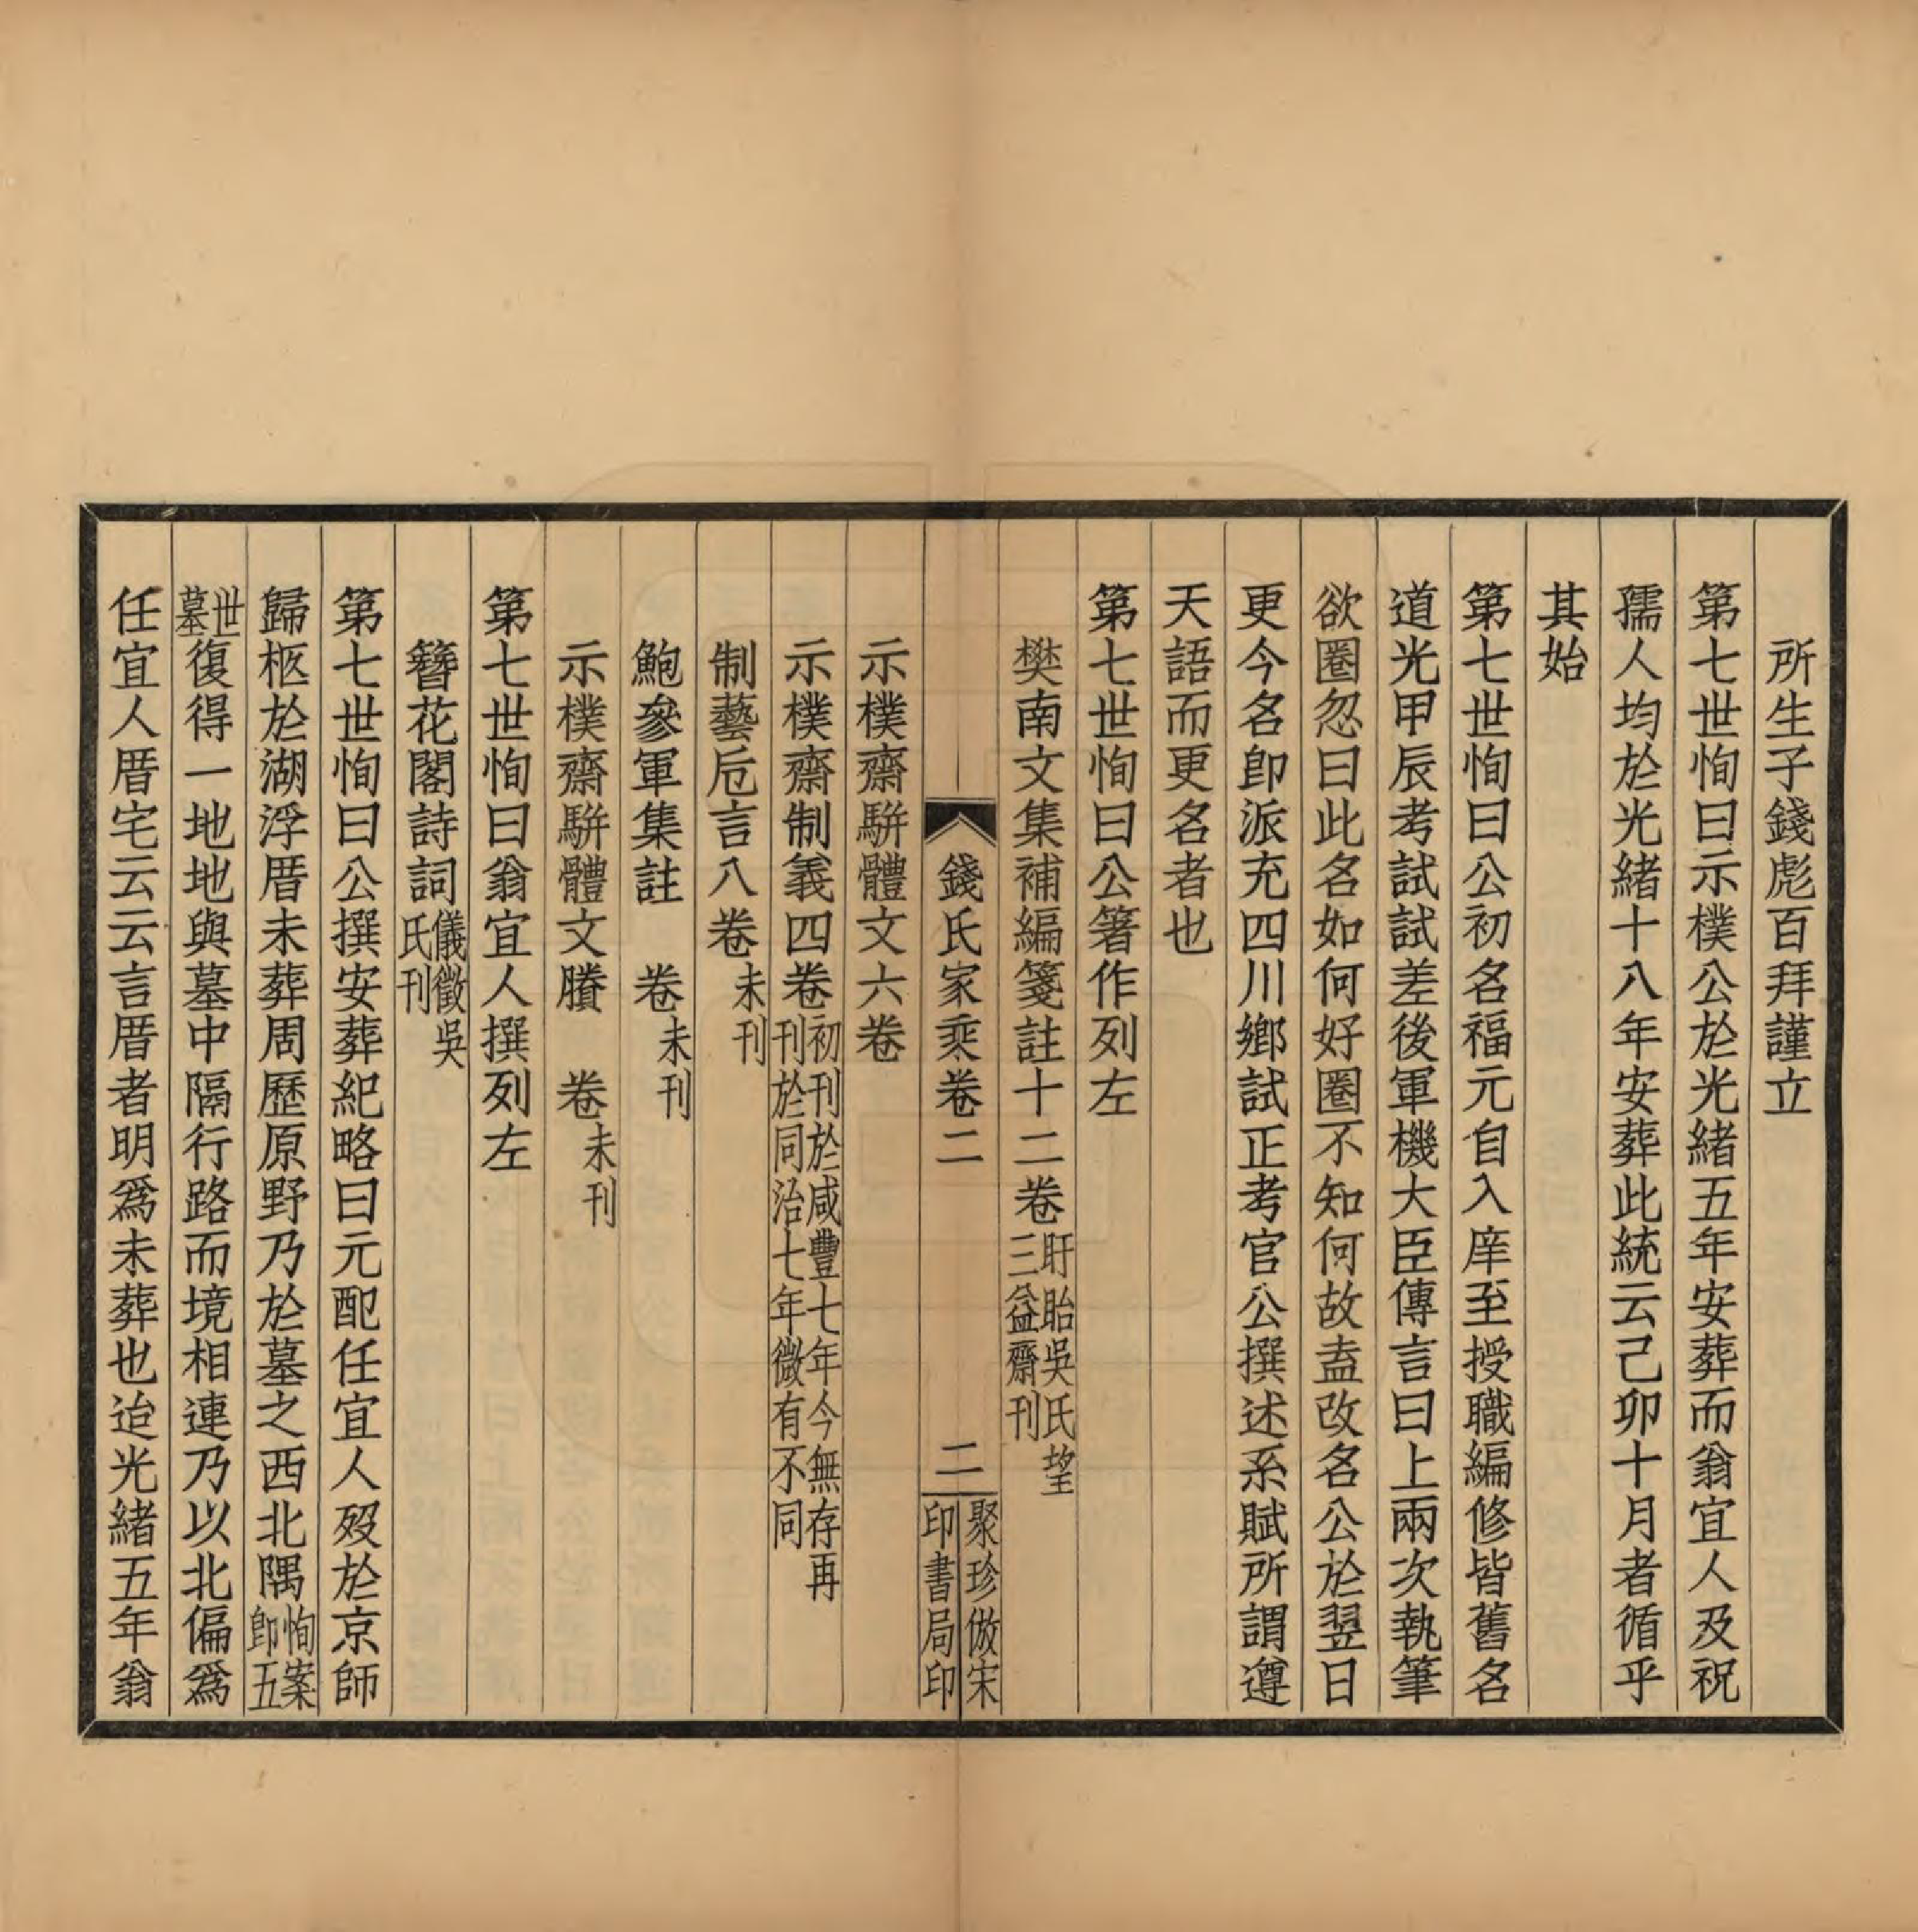 所生子錢彪百拜謹立
第七世恂曰示樸公於光緒五年安葬而翁宜人及祝
孺人均於光緒十八年安葬此統云己卯十月者循乎
其始
第七世恂曰公初名福元自入庠至授職編修皆舊名
道光甲辰考試試差後軍機大臣傳言曰上兩次執筆
欲圈忽曰此名如何好圈不知何故盍改名公於翌日
更今名卽派充四川鄉試正考官公撰述系賦所謂遵
天語而更名者也
第七世恂曰公箸作列左
樊南文集補編箋註十二卷盱眙吳氏望三益齋刊
錢氏家乘卷二 二 聚珍倣宋印書局印
示樸齋駢體文六卷
示樸齋制義四卷初刊於咸豐七年今無存再刊於同治七年微有不同
制藝卮言八卷未刊
鮑參軍集註 卷未刊
示樸齋駢體文賸 卷未刊
第七世恂曰翁宜人撰列左
簪花閣詩詞儀徵吳氏刊
第七世恂曰公撰安葬紀略曰元配任宜人歿於京師
歸柩於湖浮厝未葬周歷原野乃於墓之西北隅恂案卽五
世墓復得一地地與墓中隔行路而境相連乃以北偏爲
任宜人厝宅云云言厝者明爲未葬也迨光緒五年翁